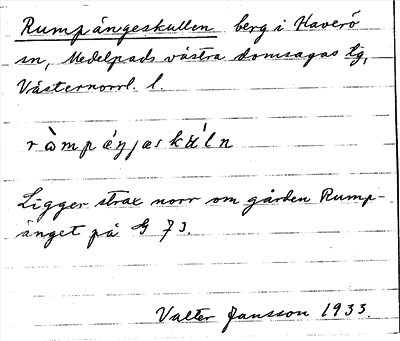 Rumpängeskullen berg i Haverö
sn, Medelpads västra domsagas tg,
Västernorrl. l.
Ligger strax norr om gården Rump-
änget på G 73.
Valter Jansson 1933.